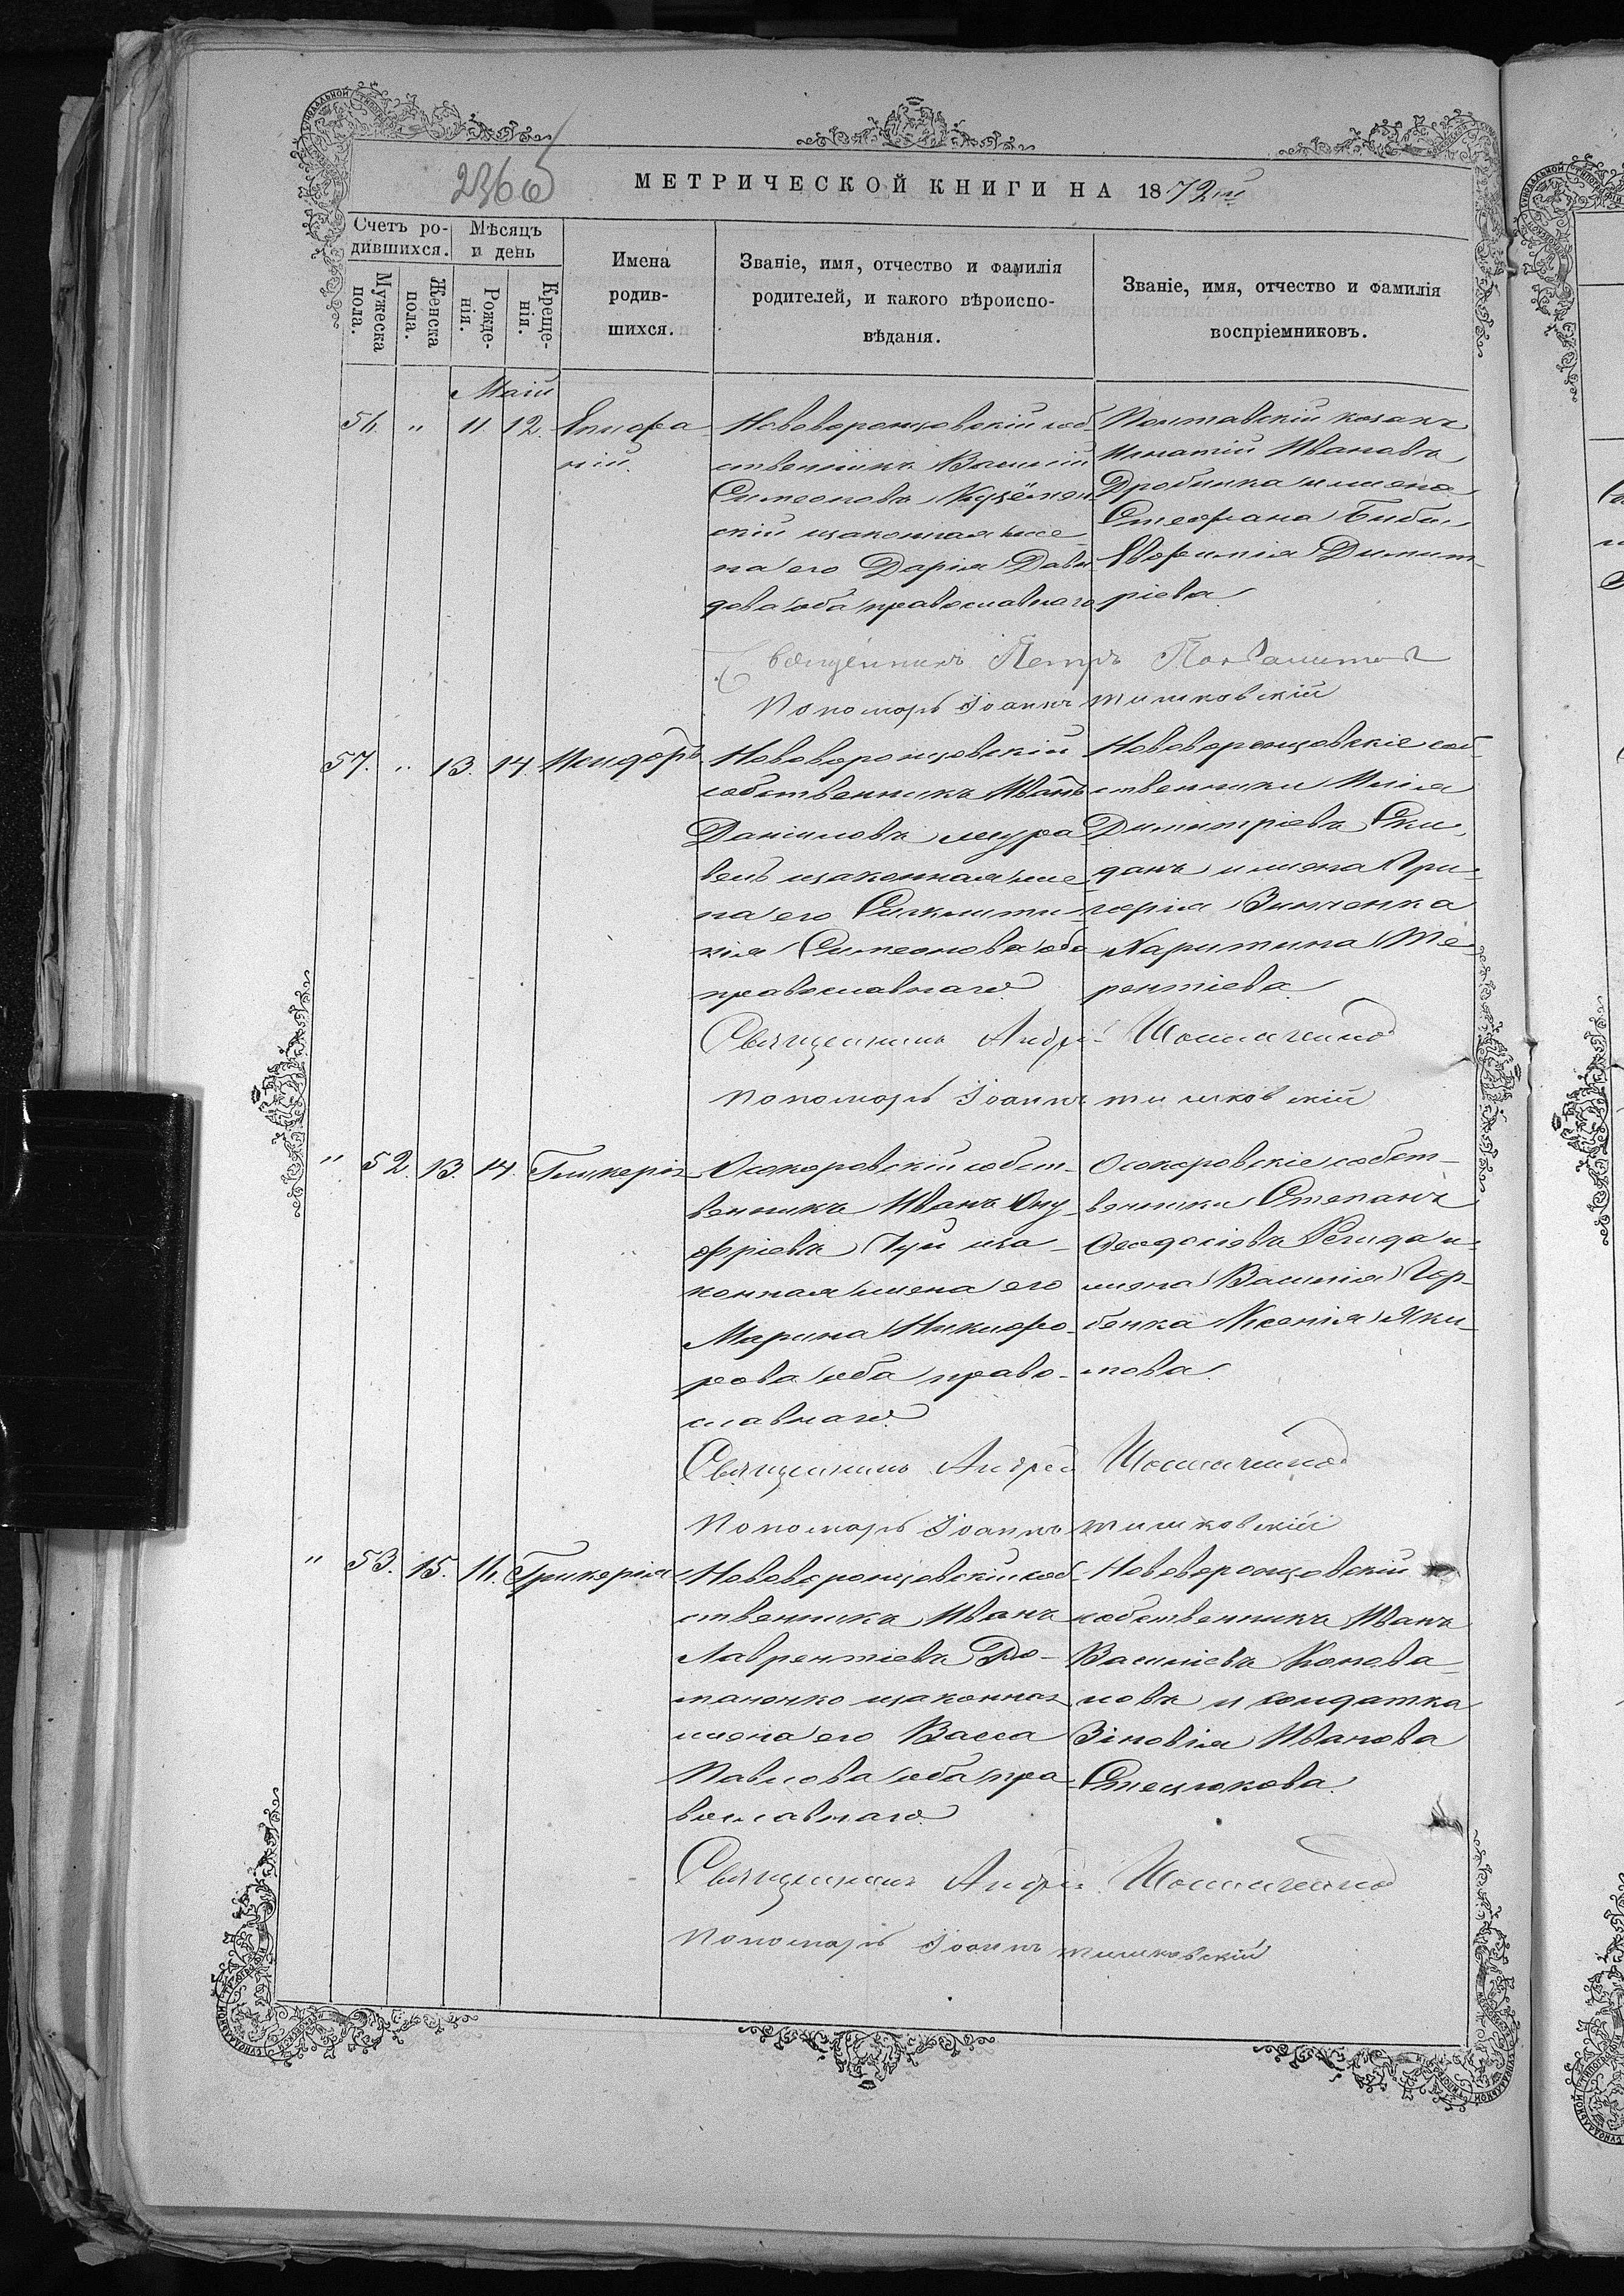 236 об
МЕТРИЧЕСКОЙ КНИГИ НА 1872 й
Счетъ ро-
дившихся.
Мужеска
пола.
Женска
пола.
Мѣсяцъ
и день
Рожде-
нія.
Креще-
нія.
Имена
родив-
шихся.
Званіе, имя, отчество и фамилія
родителей, и какого вѣроиспо-
вѣданія.
Званіе, имя, отчество и фамилія
воспріемниковъ.
Маій
56. " 11. 12. Епифа
ній.
Нововоронцовскій соб-
ственникъ Василій
Симеоновъ
скій изаконная же-
на его Дарія Дави
дова оба православнаго
Полтавскій козакъ
Игнатій Ивановъ
Дробинка и жена
Стефана Бибы
Евфимія Димит-
ріева
Священникъ Петръ
Пономарь Іоаннъ Тишковскій
57. " 13. 14. Исидоръ
Нововоронцовскій
собственникъ Иванъ
Даніиловъ Мура
вель изаконная же
на его Синклити-
кія Симеонова оба
православнаго
Нововоронцовскіе соб
ственники Илія
Димитріевъ Ски
данъ и жена Гри-
горія Зинченка
Харитина Те-
рентіева
Священникъ Андрей
Пономарь Іоаннъ Тишковскій
" 52. 13. 14. Гликерія
Осокоровскій собст-
венникъ Иванъ Ону-
фріевъ Гуй иза-
конная жена его
Марина Никифо-
рова оба право-
славнаго
Осокоровскіе собст-
венники Степанъ
Феодосіевъ и
жена Василія Гор-
бенка Ксенія Яки-
мова
Священникъ Андрей
Пономарь Іоаннъ Тишковскій
" 53. 15. 16. Гликерія
Нововоронцовскій соб-
ственникъ Иванъ
Лаврентіевъ Ро-
маненко изаконная
жена его Васса
Павлова оба пра-
вославнаго
Нововоронцовскій
собственникъ Иванъ
Василіевъ Конова-
ловъ и солдатка
Зіновія Иванова
Стецюкова
Священникъ Андрей
Пономарь Іоаннъ Тишковскій